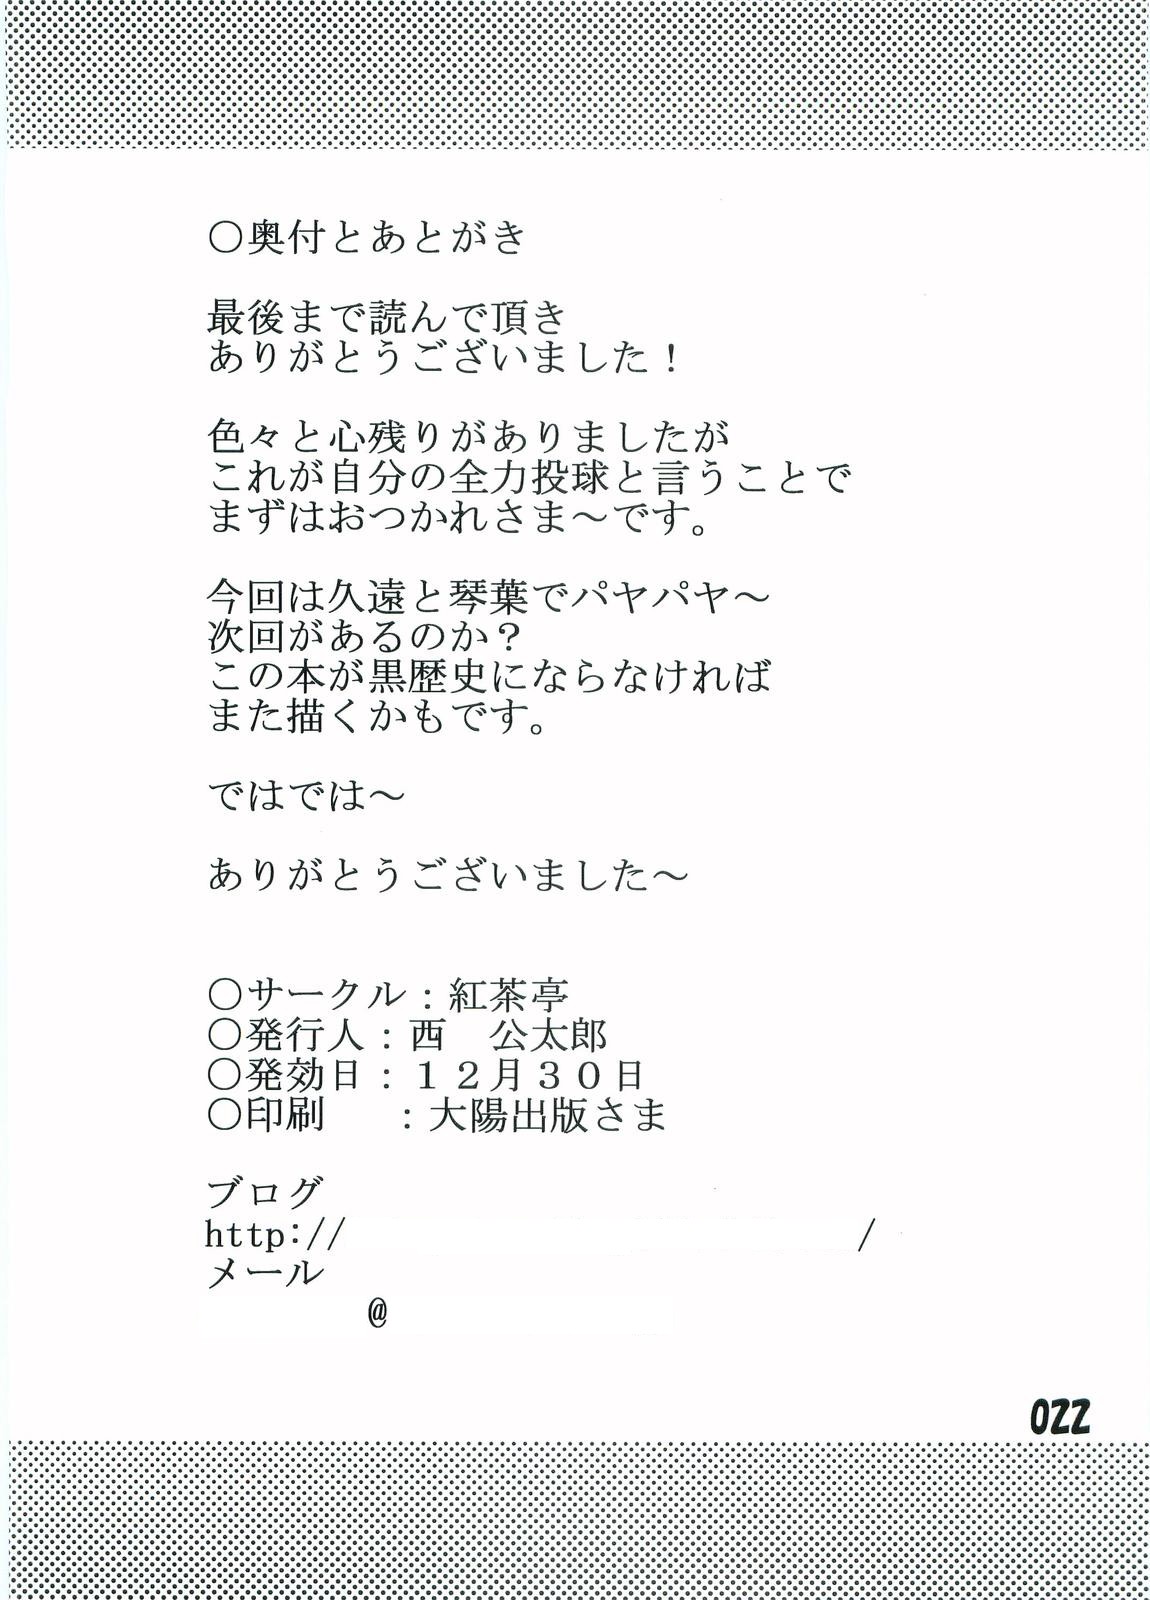 ○奥付とあとがき
最後まで読んで頂き
ありがとうございました！
色々と心残りがありましたが
これが自分の全力投球と言うことで
まずはおつかれさま～です。
今回は久遠と琴葉でパヤパヤ～
次回があるのか？
この本が黒歴史にならなければ
また描くかもです。
ではでは～
ありがとうございました～
○サークル：紅茶亭
○発行人：西　公太郎
○発効日：１２月３０日
○印刷　　：大陽出版さま
ブログ
http:// /
メール
@
022